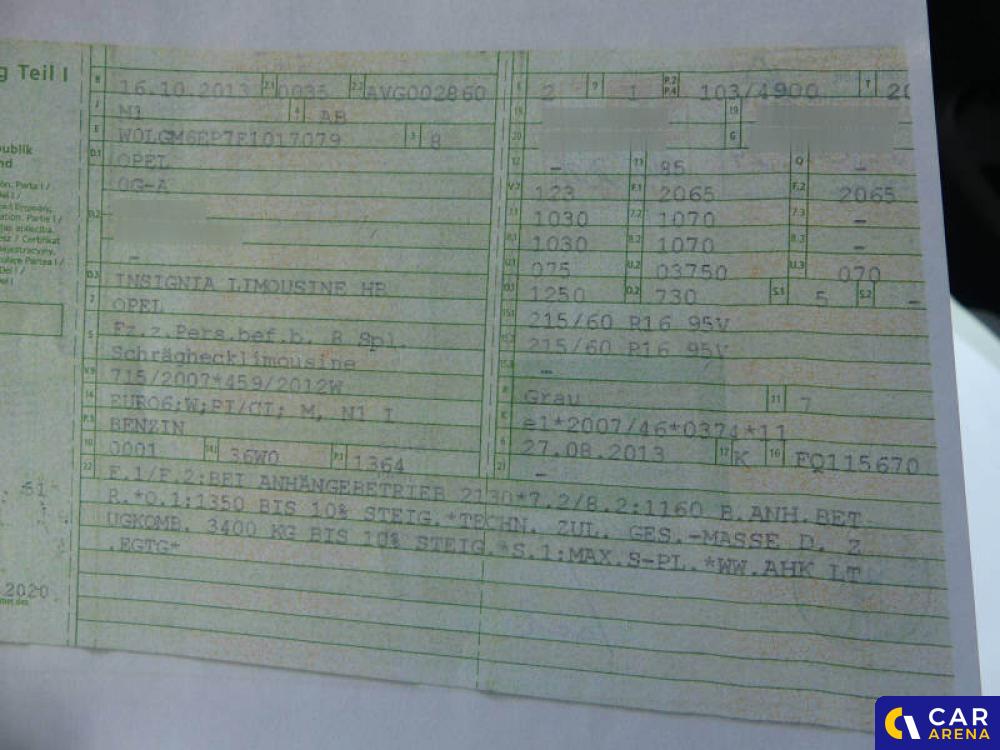 g Teil I
B 16.10.2013 2.1 0035 2.2 AVG002860
J M1 4 AB
E W0LGM6EP7F1017079 3 8
D.1 OPEL
D.2 0G-A
-
D.3 INSIGNIA LIMOUSINE HB
2 OPEL
5 Fz.z.Pers.bef.b. 8 Spl.
Schräghecklimousine
V.9 715/2007*459/2012W
14 EURO6;W;PI/CI; M, N1 I
P.3 BENZIN
10 0001 14.1 36W0 P.1 1364
L 2 9 1 P.2 P.4 103/4900 T 20
18 19
20 G
12 - 13 85 Q -
V.7 123 F.1 2065 F.2 2065
7.1 1030 7.2 1070 7.3 -
8.1 1030 8.2 1070 8.3 -
U.1 075 U.2 03750 U.3 070
O.1 1250 O.2 730 S.1 5 S.2 -
15.1 215/60 R16 95V
15.2 215/60 R16 95V
15.3 -
R Grau 11 7
K e1*2007/46*0374*11
6 27.08.2013 17 K 16 FQ115670
21 -
22 F.1/F.2:BEI ANHÄNGEBETRIEB 2130*7.2/8.2:1160 B.ANH.BET
R.*O.1:1350 BIS 10% STEIG.*TECHN. ZUL. GES.-MASSE D. Z
UGKOMB. 3400 KG BIS 10% STEIG.*S.1:MAX.S-PL.*WW.AHK LT
.EGTG*
publik
nd
51
2020
CAR
ARENA